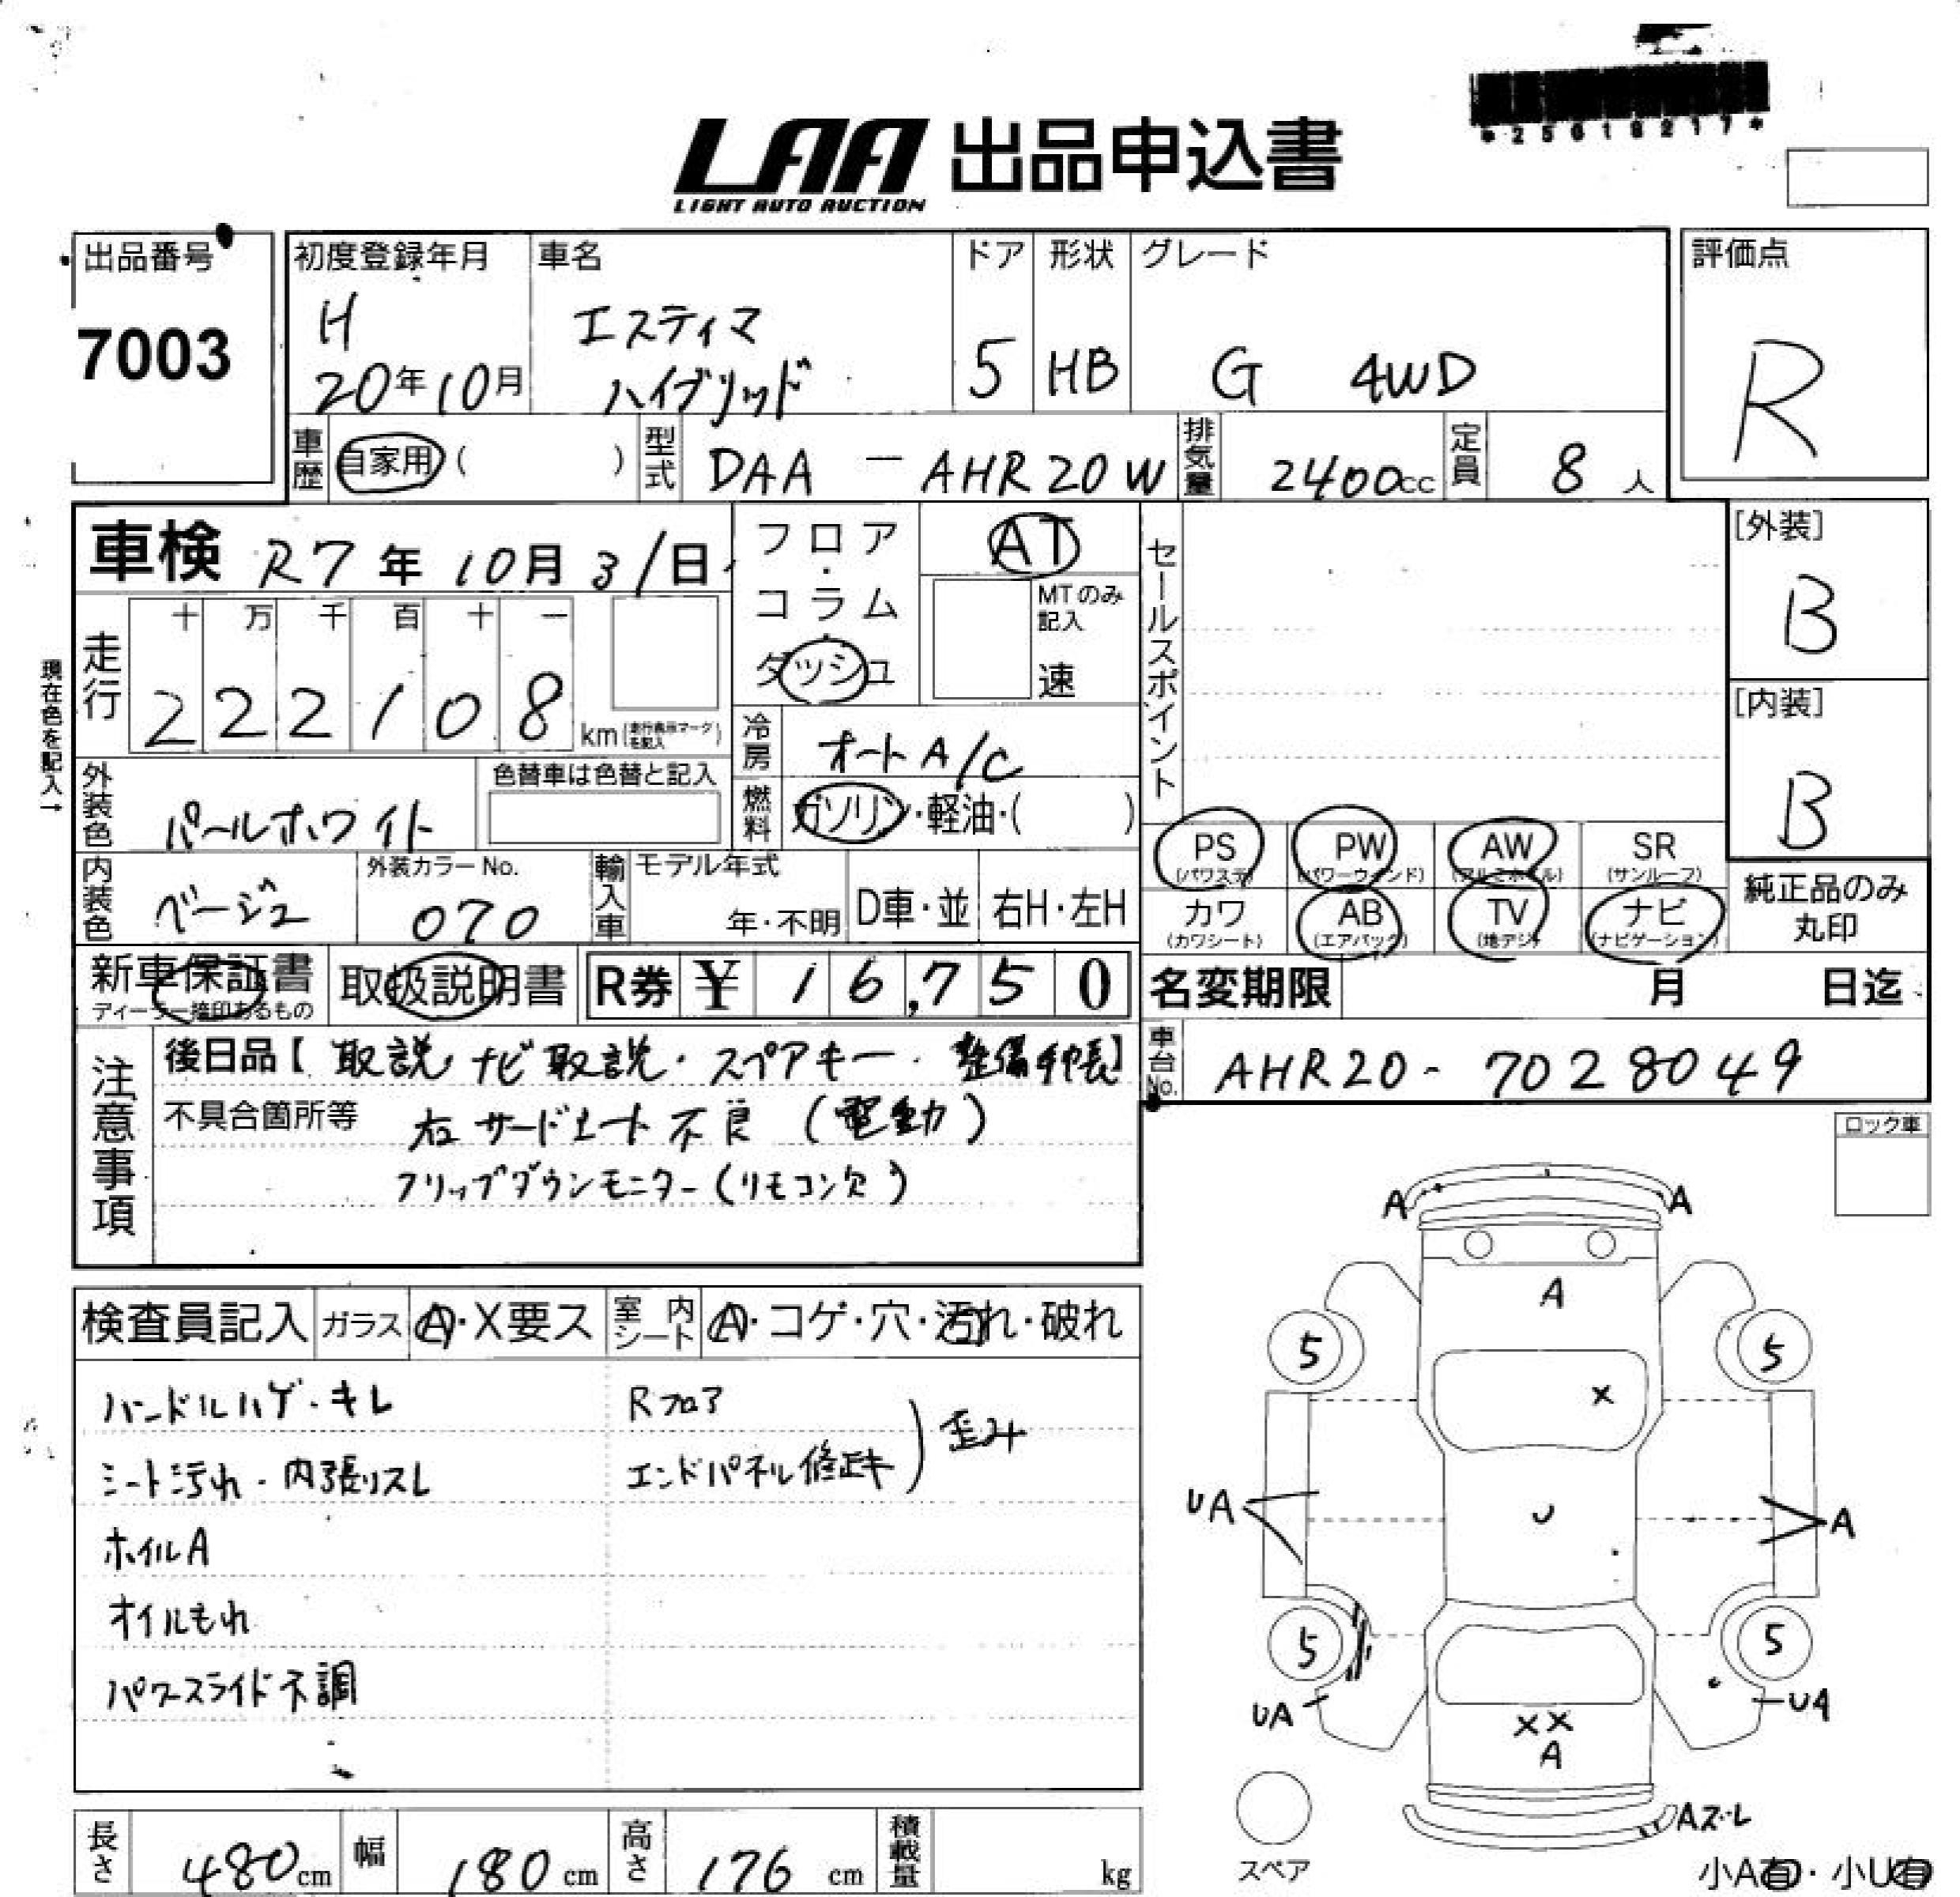 *25018217*
LAA 出品申込書
LIGHT AUTO AUCTION
出品番号
7003
初度登録年月
H
20年10月
車名
エスティマ
ハイブリッド
ドア
5
形状
HB
グレード
G 4WD
評価点
R
車歴 自家用 ( )
型式 DAA - AHR20W
排気量 2400cc
定員 8人
車検 R7年10月31日
フロア・コラム・ダッシュ
AT
MTのみ記入
速
セールスポイント
[外装]
B
[内装]
B
現在色を記入→
走行
十 万 千 百 十 一
2 2 2 1 0 8 km (走行表示マークを記入)
冷房 オートA/C
外装色 パールホワイト
色替車は色替と記入
燃料 ガソリン・軽油・( )
PS (パワステ)
PW (パワーウィンドウ)
AW (アルミホイル)
SR (サンルーフ)
カワ (カワシート)
AB (エアバック)
TV (地デジ)
ナビ (ナビゲーション)
純正品のみ
丸印
内装色 ベージュ
外装カラーNo.
070
輸入車
モデル年式
年・不明
D車・並
右H・左H
新車保証書
ディーラー捺印あるもの
取扱説明書
R券 ¥ 16,750
名変期限 月 日迄
車台No. AHR20-7028049
注意事項
後日品【取説 ナビ取説・スペアキー・整備手帳】
不具合箇所等 右サードシート不良(電動)
フリップダウンモニター(リモコン欠)
ロック車
検査員記入
ガラス A・X要ス
室内シート A・コゲ・穴・汚れ・破れ
ハンドルハゲ・キレ
シート汚れ・内張リスレ
ホイルA
オイルもれ
パワースライド不調
Rフロア
エンドパネル修正キ
歪み
A A
A
5 5
X
UA U A
5 5
UA UA
XX
A
Aズレ
スペア
小A有・小U有
長さ 480cm
幅 180cm
高さ 176cm
積載量 kg